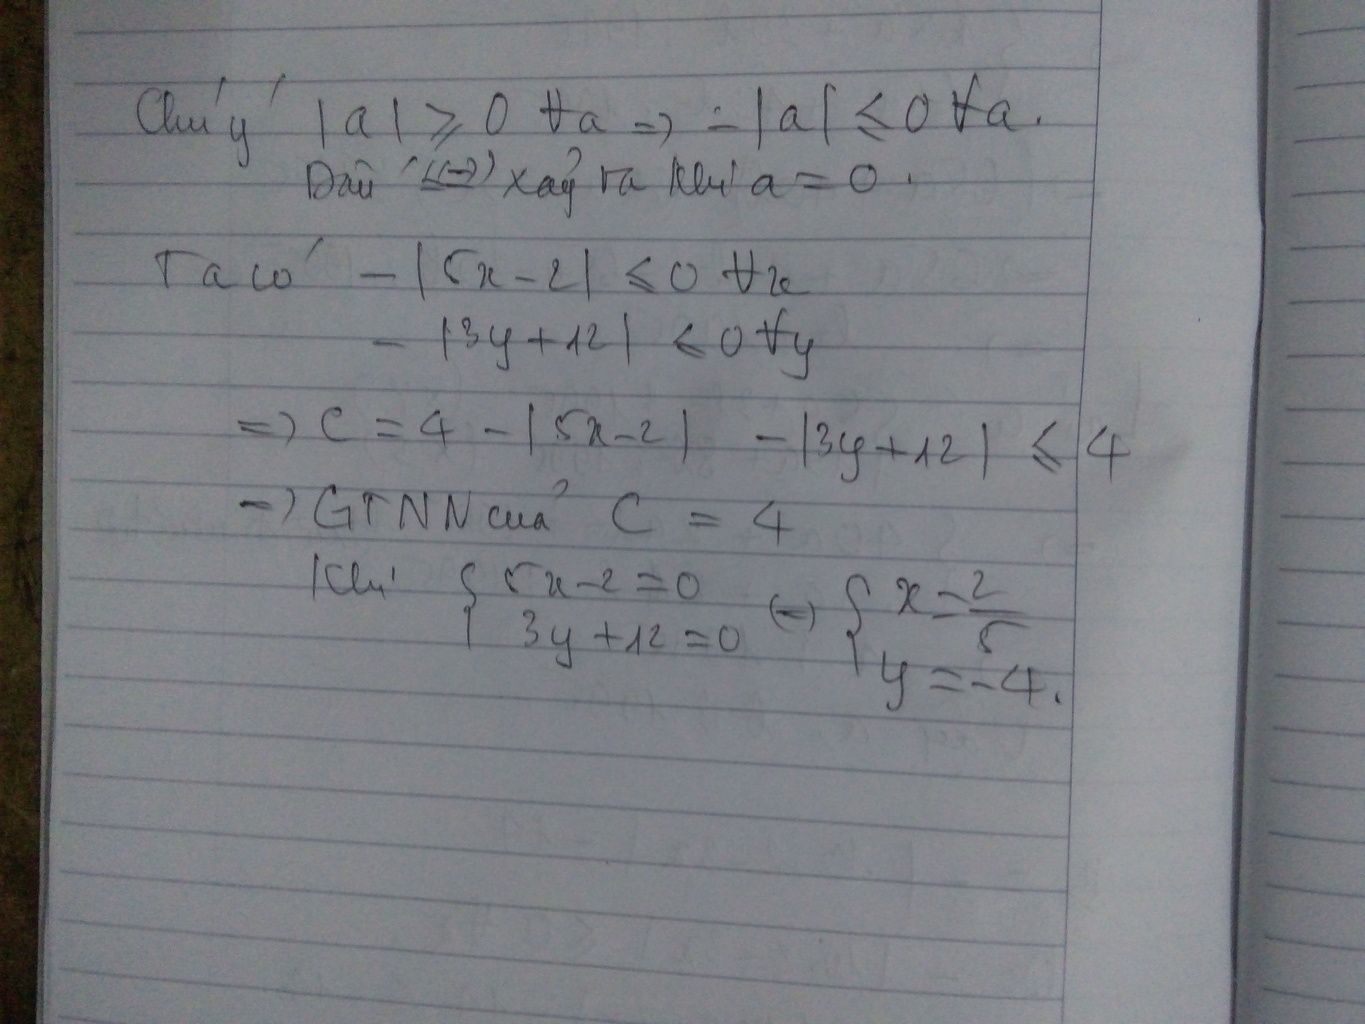 Chú ý |a| ≥ 0 ∀a => -|a| ≤ 0 ∀a.
Dấu "=" xảy ra khi a = 0.
Ta có -|5x-2| ≤ 0 ∀x
- |3y+12| ≤ 0 ∀y
=> C = 4 -|5x-2| -|3y+12| ≤ 4
=> GTNN của C = 4
Khi { 5x-2=0 3y+12=0 (=) { x=2/5 y=-4.